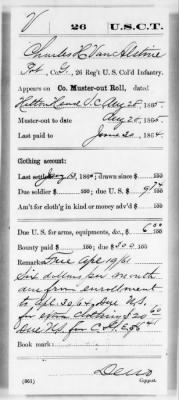 V 26 U.S.C.T.
Charles H. Van Alstine
Pvt, Co. G, 26 Reg't U. S. Col'd Infantry.
Appears on Co. Muster-out Roll, dated
Hilton Head S.C. Aug 28, 1865.
Muster-out to date Aug 28, 1865.
Last paid to June 30, 1864.
Clothing account:
Last settled 186 ; drawn since $ 100
Due soldier $ 100; due U. S. $ 100
Am't for cloth'g in kind or money adv'd $ 100
Due U. S. for arms, equipments, &c., $ 6 00 100
Bounty paid $ 100; due $ 300 100
Remarks: Free Apr 19/61
Six dollars per month
due from enrollment
to Apl 30/64. Due U.S.
for extra clothing $20 60
Due U.S. for C. &
Book mark:
(361) Copyist.